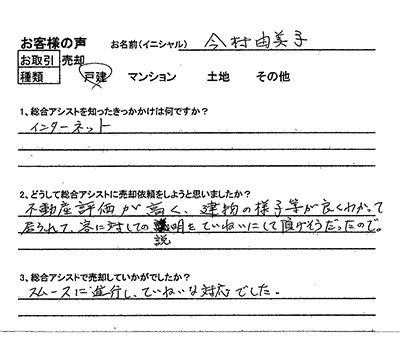 お客様の声 お名前(イニシャル) 今村由美子
お取引 売却
種類 戸建 マンション 土地 その他
1、総合アシストを知ったきっかかけは何ですか?
インターネット
2、どうして総合アシストに売却依頼をしようと思いましたか?
不動産評価が高く、建物の様子等が良くわかって
居られて、客に対しての説明をていねいにして頂けそうだったので。
3、総合アシストで売却していかがでしたか?
スムースに進行し、ていねいな対応でした。